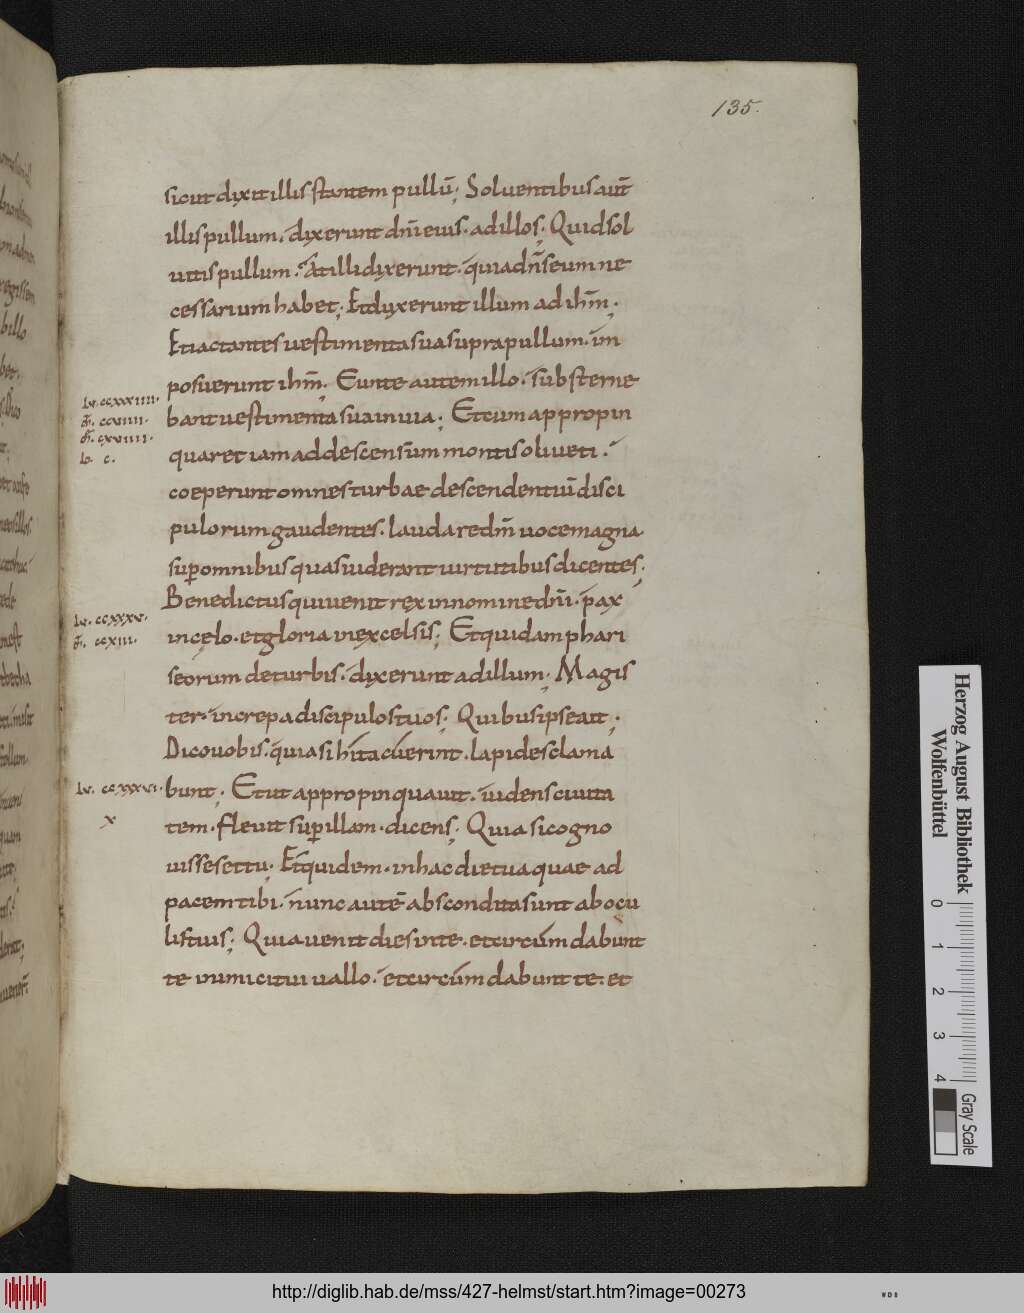 135.
sicut dixit illis stantem pullū; Soluentibus aut̄
illis pullum. dixerunt dn̄i eius. ad illos; Quid sol
uitis pullum. At illi dixerunt. quia dn̄s eum ne
cessarium habet; Et duxerunt illum ad ihm̄;
Et iactantes uestimenta sua supra pullum. im
posuerunt ihm̄; Eunte autem illo. substerne
bant uestimenta sua in uia; Et cum appropin
quaret iam ad descensum montis oliueti.
coeperunt omnes turbae descendentiū disci
pulorum gaudentes. laudare dm̄ uoce magna
sup omnibus quas uiderant uirtutibus dicentes;
Benedictus qui uenit rex in nomine dn̄i. pax
in cęlo. et gloria in excelsis; Et quidam phari
seorum de turbis. dixerunt ad illum; Magis
ter. increpa discipulos tuos; Quibus ipse ait;
Dico uobis. quia si hi tacuerint. lapides clama
bunt; Et ut appropinquauit. uidens ciuita
tem. fleuit sup illam. dicens; Quia si cogno
uisses et tu; Et quidem. in hac die tua quae ad
pacem tibi. nunc autē abscondita sunt ab ocu
lis tuis; Quia uenit dies in te. et circum dabunt
te inimici tui uallo. et circum dabunt te. et
Lu. ccxxxiiii.
lo. c.
Lu. ccxxxv.
ccxiii.
Lu. ccxxxvi.
x
Herzog August Bibliothek
Wolfenbüttel
0 1 2 3 4
Gray Scale
http://diglib.hab.de/mss/427-helmst/start.htm?image=00273